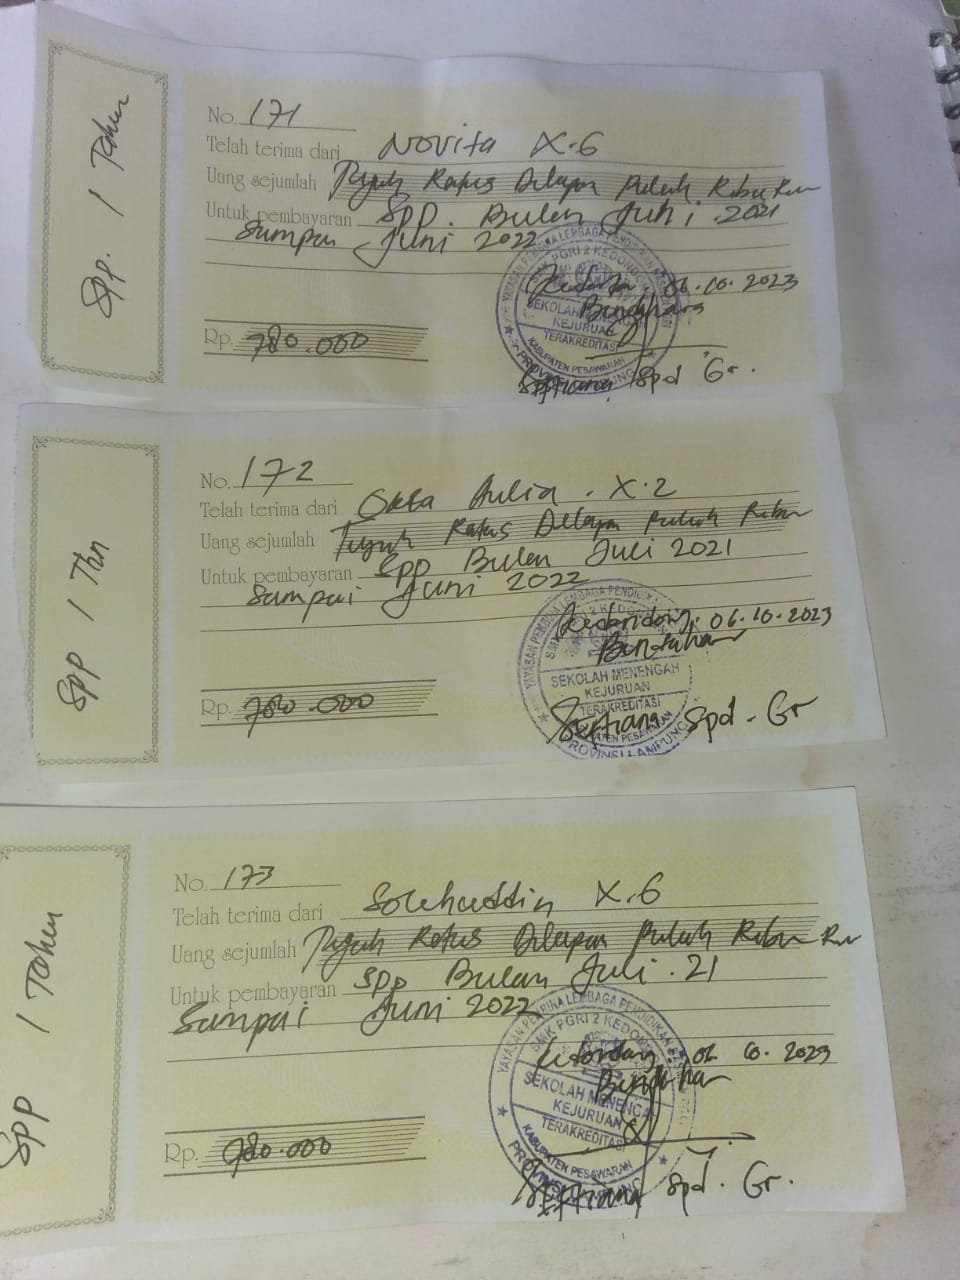 Spp. 1 Tahun
No. 171
Telah terima dari Novita X.6
Uang sejumlah Tujuh Ratus Delapan Puluh Ribu
Untuk pembayaran Spp. Bulan Juli. 2021
Sampai Juni 2022
06.10.2023
Bendahara
Rp. 780.000
Septiana Spd Gr.
YAYASAN PEMBINA LEMBAGA PENDIDIKAN
SMK PGRI 2 KEDONDONG
SEKOLAH MENENGAH
KEJURUAN
TERAKREDITASI
KABUPATEN PESAWARAN
PROVINSI LAMPUNG
Spp 1 Thn
No. 172
Telah terima dari Aulia. X.2
Uang sejumlah Tujuh Ratus Delapan Puluh Ribu
Untuk pembayaran Spp Bulan Juli 2021
Sampai Juni 2022
Kedondong, 06.10.2023
Bendahara
Rp. 780.000
Septiana Spd. Gr
YAYASAN PEMBINA LEMBAGA PENDIDIKAN
SEKOLAH MENENGAH
KEJURUAN
TERAKREDITASI
PROVINSI LAMPUNG
Spp 1 Tahun
No. 173
Telah terima dari Solehuddin X.6
Uang sejumlah Tujuh Ratus Delapan Puluh Ribu
Untuk pembayaran Spp Bulan Juli. 21
Sampai Juni 2022
Kedondong, 06 10.2023
Bendahara
Rp. 780.000
Septiana Spd. Gr.
YAYASAN PEMBINA LEMBAGA PENDIDIKAN
SMK PGRI 2 KEDONDONG
SEKOLAH MENENGAH
KEJURUAN
TERAKREDITASI
KABUPATEN PESAWARAN